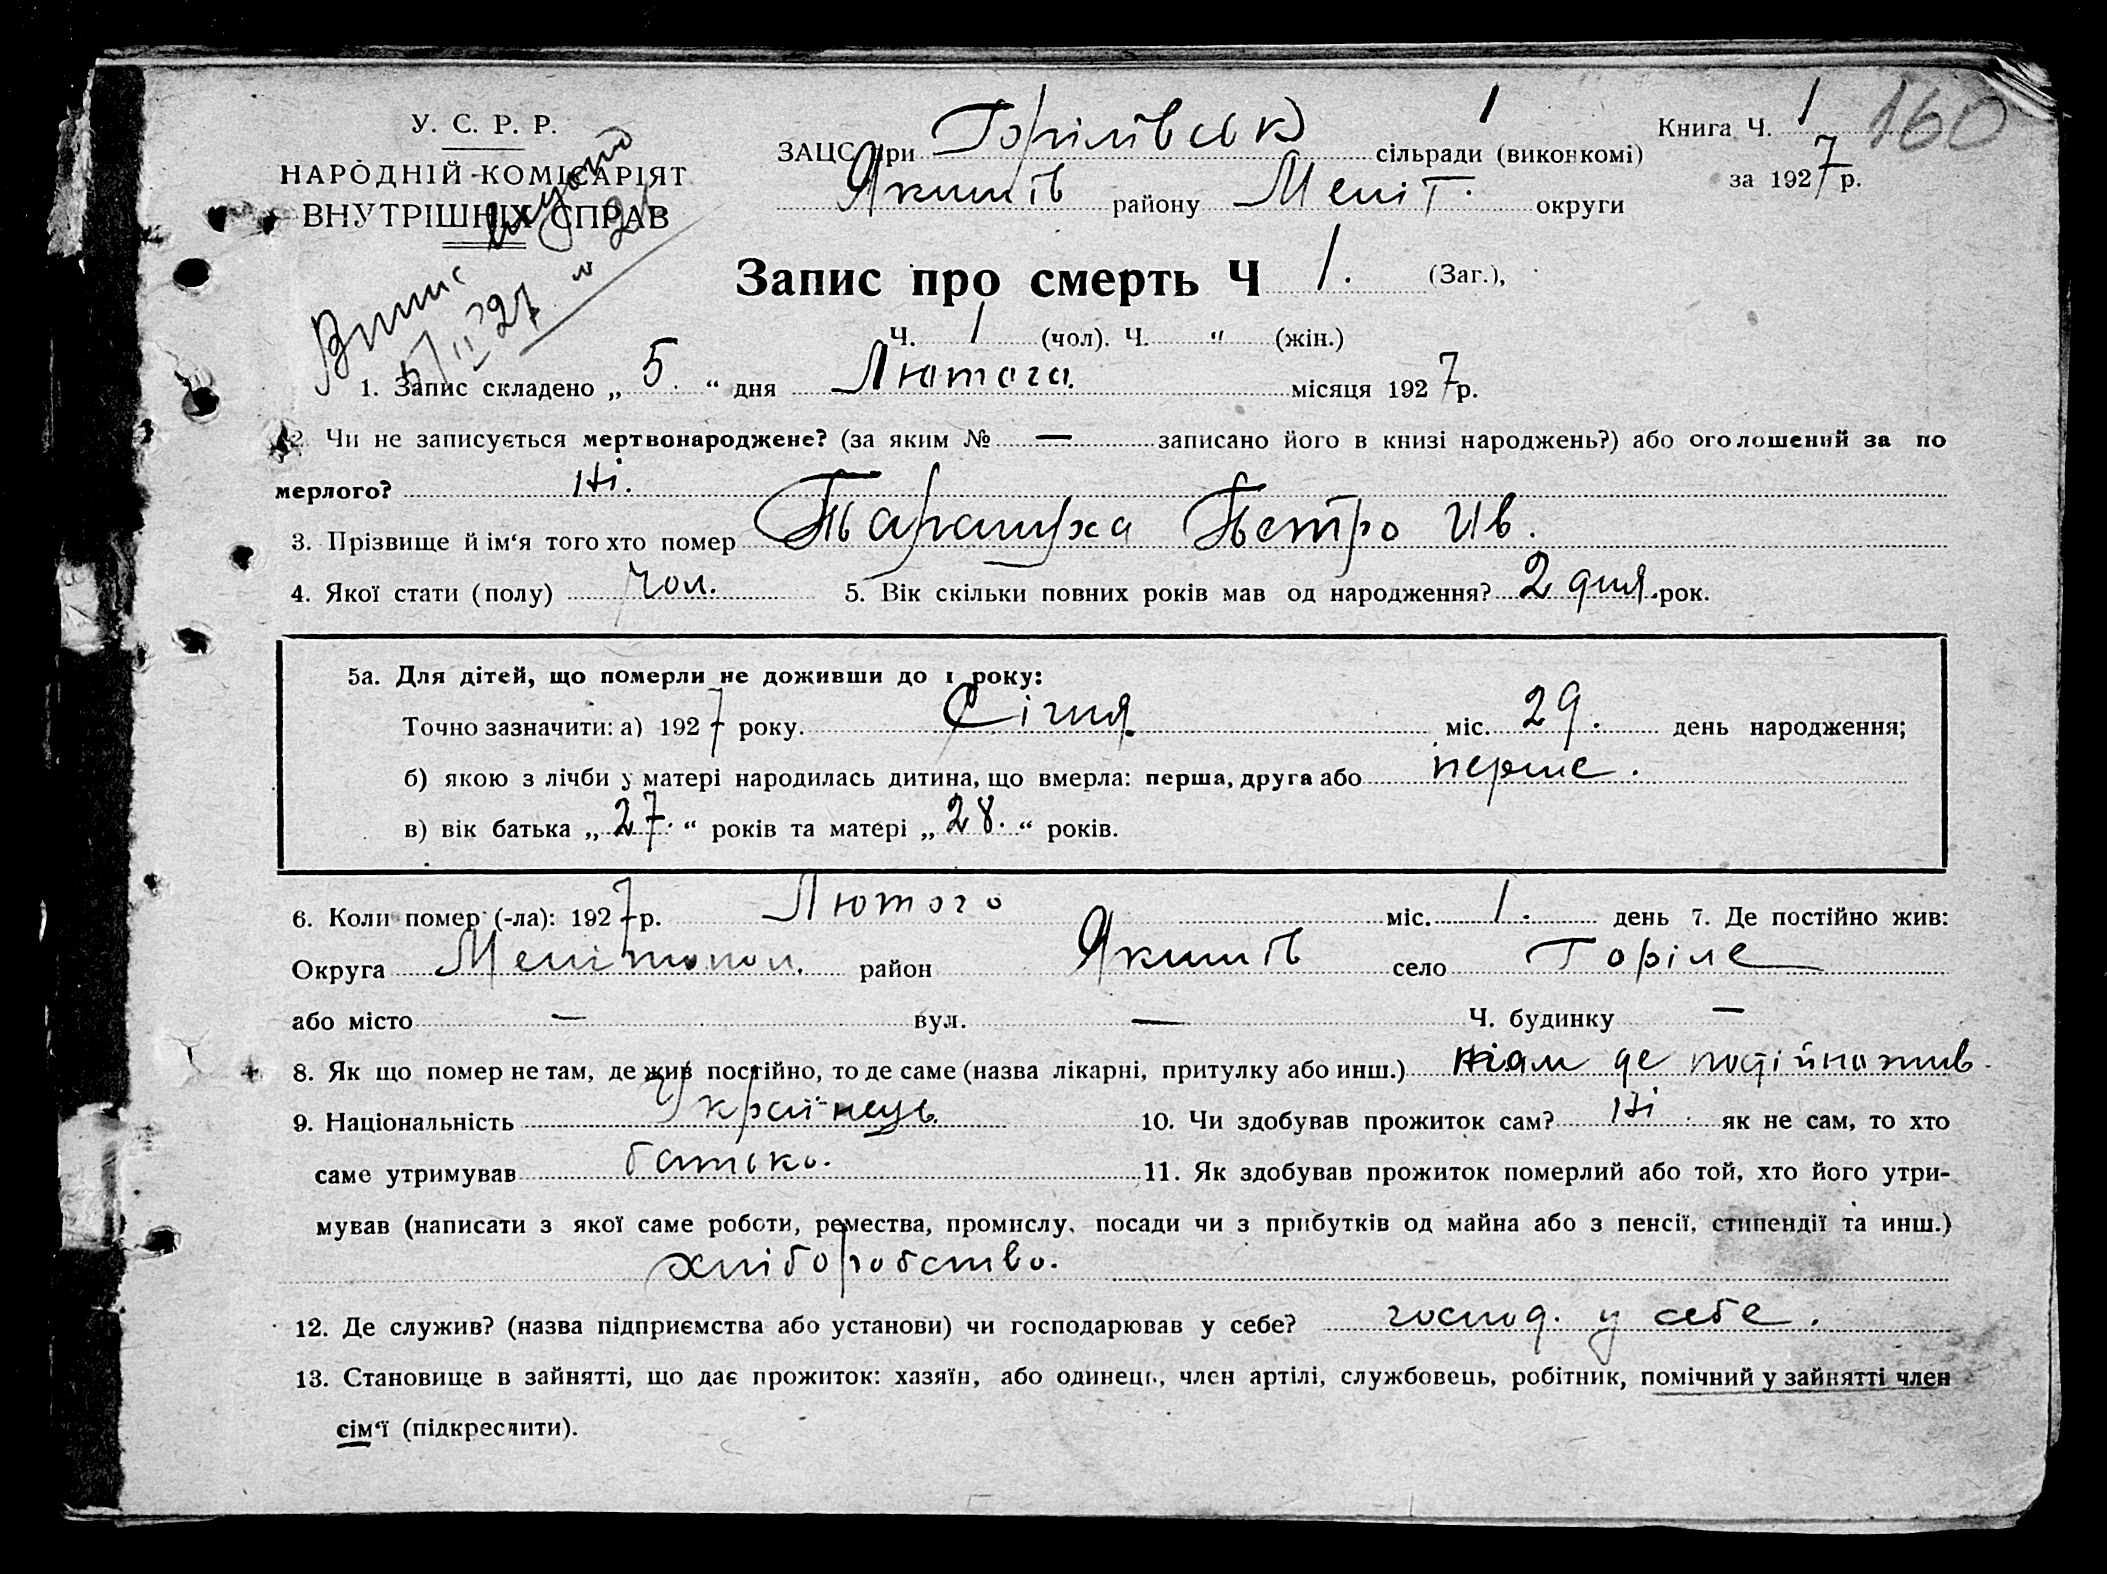 У. С. Р. Р.
НАРОДНІЙ КОМІСАРІЯТ
ВНУТРІШНІХ СПРАВ
Книга Ч. 1 160
за 1927 р.
ЗАЦС при Горілівськ 1 сільради (виконкомі)
Якимів району Меліт. округи
Випис видано
5/II 27 21
Запис про смерть Ч 1. (Заг.),
Ч. 1 (чол). Ч. " (жін.)
1. Запис складено „ 5. “ дня Лютого. місяця 1927 р.
2. Чи не записується мертвонароджене? (за яким № — записано його в книзі народжень?) або оголошений за по
мерлого? Ні.
3. Прізвище й ім‘я того хто помер Тарануха Петро Ив.
4. Якої стати (полу) чол. 5. Вік скільки повних років мав од народження? 2 дня рок.
5а. Для дітей, що померли не доживши до 1 року:
Точно зазначити: а) 1927 року. Січня міс. 29. день народження;
б) якою з лічби у матері народилась дитина, що вмерла: перша, друга або перше.
в) вік батька „ 27. “ років та матері „ 28. “ років.
6. Коли помер (-ла): 1927 р. Лютого міс. 1. день 7. Де постійно жив:
Округа Мелітопол. район Якимів село Горіле
або місто — вул. — Ч. будинку —
8. Як що помер не там, де жив постійно, то де саме (назва лікарні, притулку або инш.) там де постійно жив.
9. Національність Українець. 10. Чи здобував прожиток сам? Ні. як не сам, то хто
саме утримував батько. 11. Як здобував прожиток померлий або той, хто його утри-
мував (написати з якої саме роботи, ремества, промислу, посади чи з прибутків од майна або з пенсії, стипендії та инш.)
хліборобство.
12. Де служив? (назва підприємства або установи) чи господарював у себе? господ. у себе.
13. Становище в зайнятті, що дає прожиток: хазяїн, або одинець, член артілі, службовець, робітник, помічний у зайнятті член
сім‘ї (підкреслити).